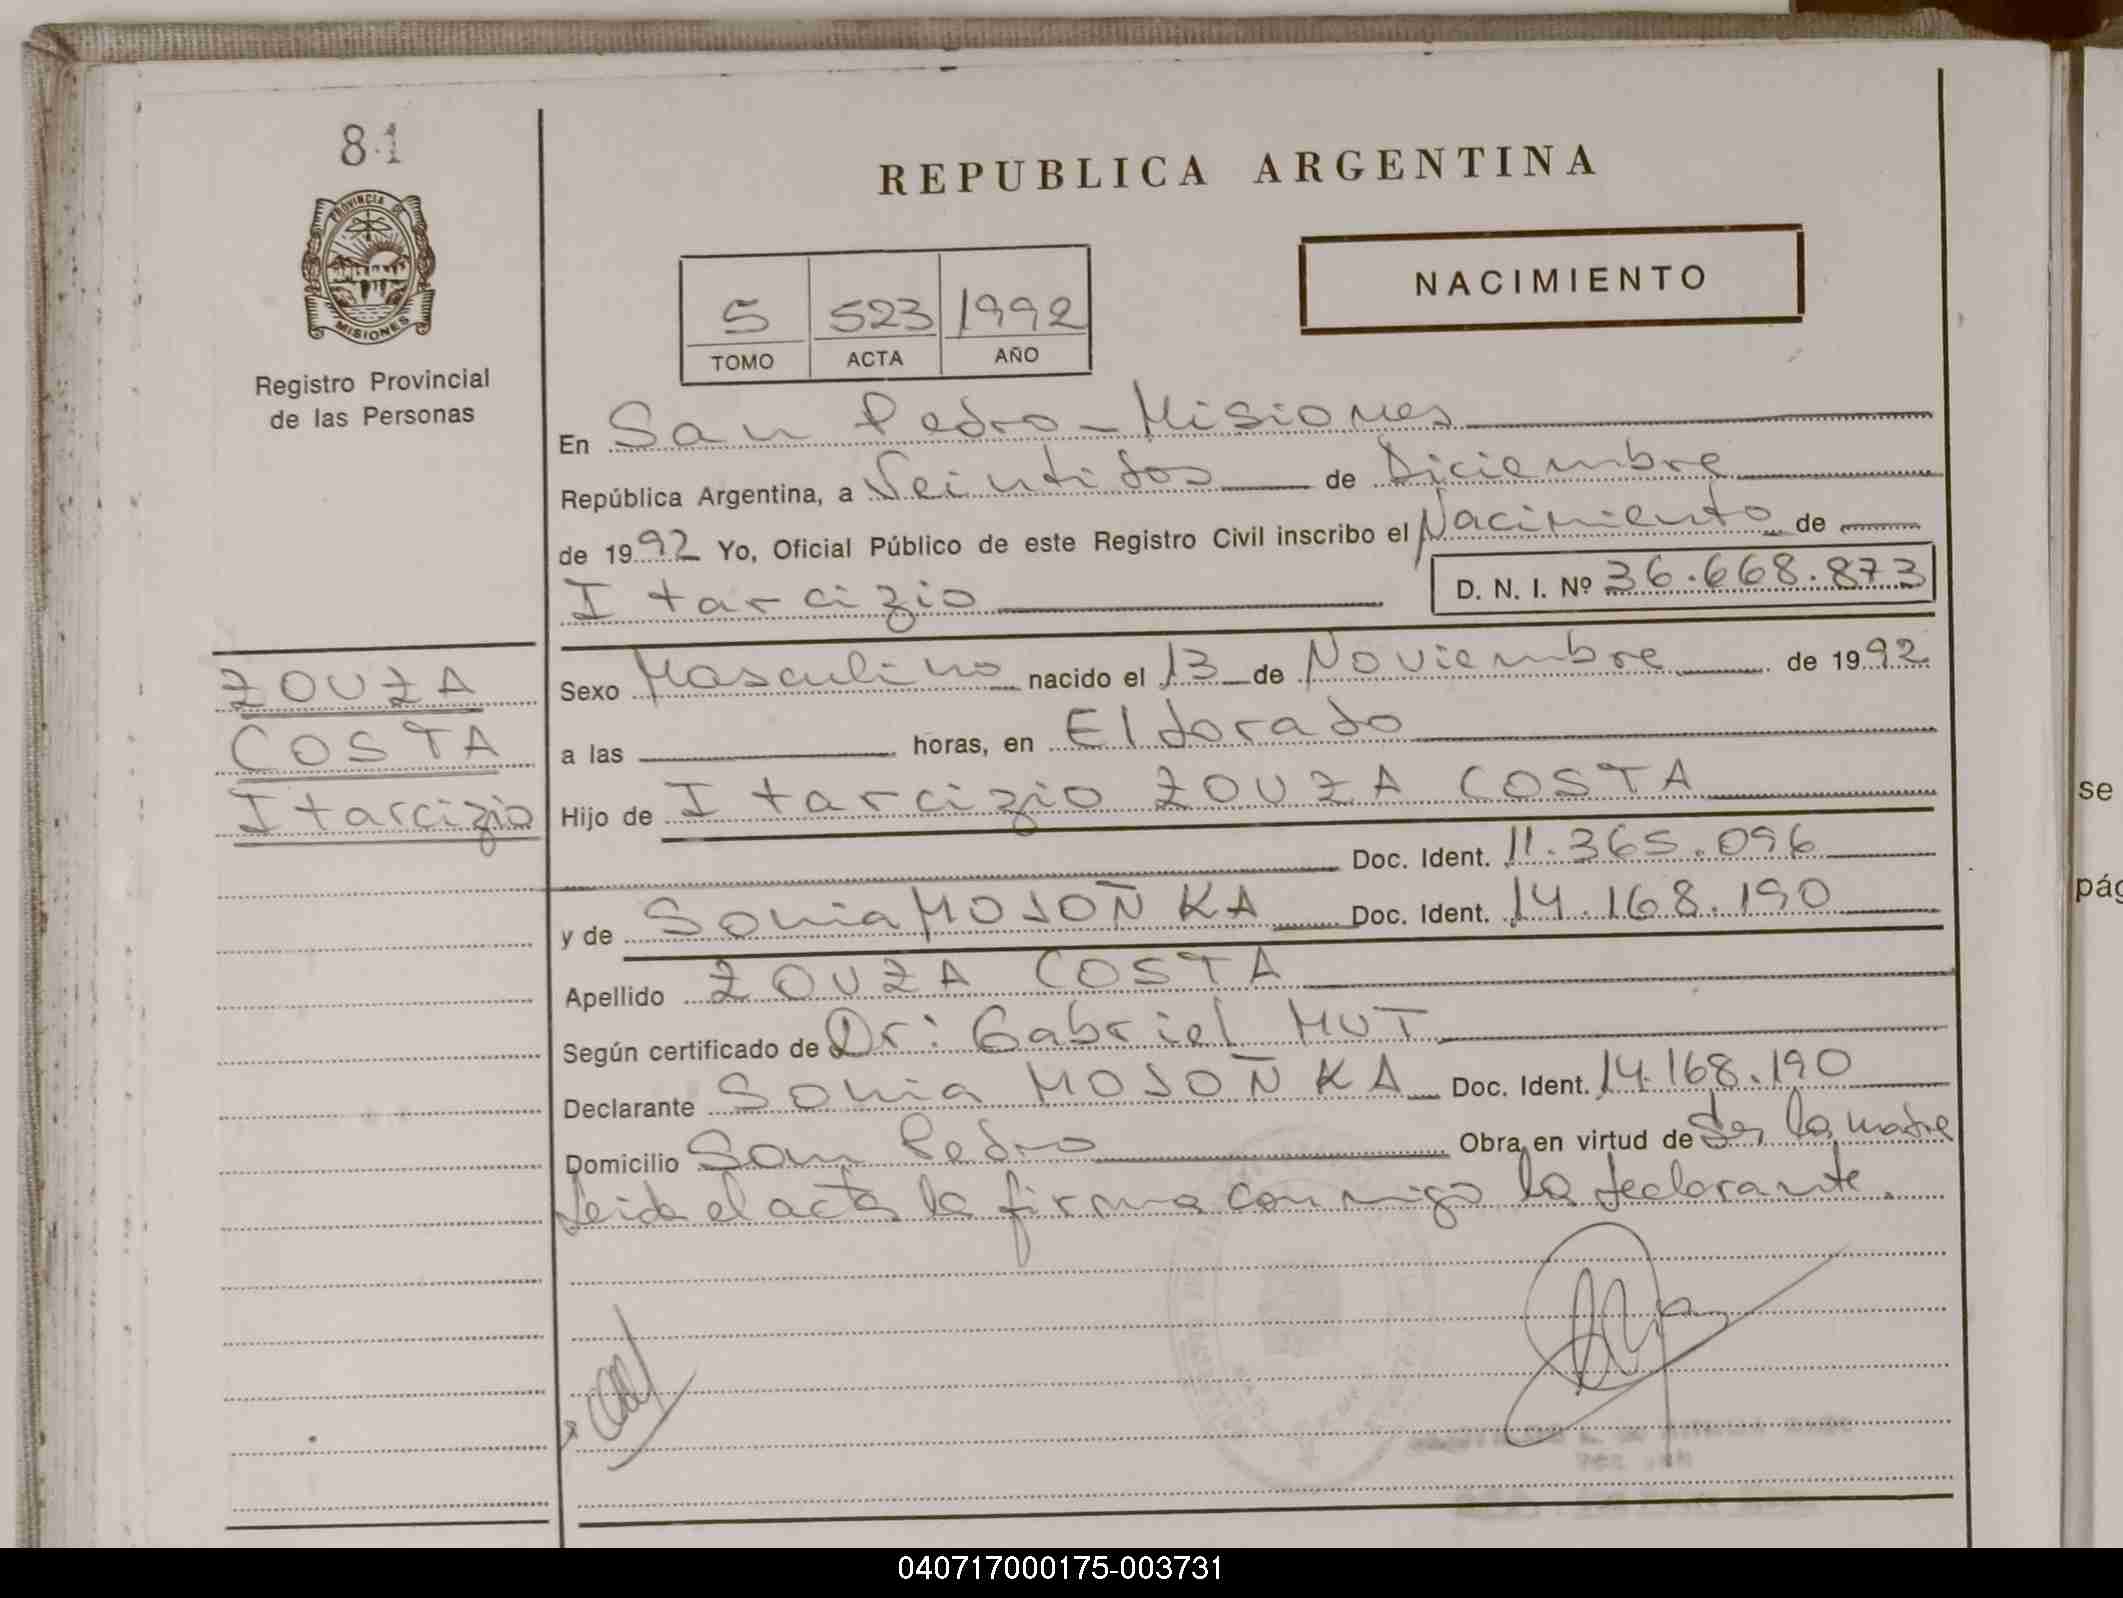 81
PROVINCIA DE
MISIONES
Registro Provincial
de las Personas
REPUBLICA ARGENTINA
5 523 1992
TOMO ACTA AÑO
NACIMIENTO
En San Pedro - Misiones
República Argentina, a Veintidos de Diciembre
de 1992 Yo, Oficial Público de este Registro Civil inscribo el Nacimiento de
Itarcizio D. N. I. Nº 36.668.873
ZOUZA
COSTA
Itarcizio
Sexo Masculino nacido el 13 de Noviembre de 1992
a las horas, en Eldorado
Hijo de Itarcizio ZOUZA COSTA
Doc. Ident. 11.365.096
y de Sonia MOJOÑKA Doc. Ident. 14.168.190
Apellido ZOUZA COSTA
Según certificado de Dr: Gabriel MUT
Declarante Sonia MOJOÑKA Doc. Ident. 14.168.190
Domicilio San Pedro Obra en virtud de Ser la madre
Leida el acta la firma conmigo la declarante.
se
pág
040717000175-003731